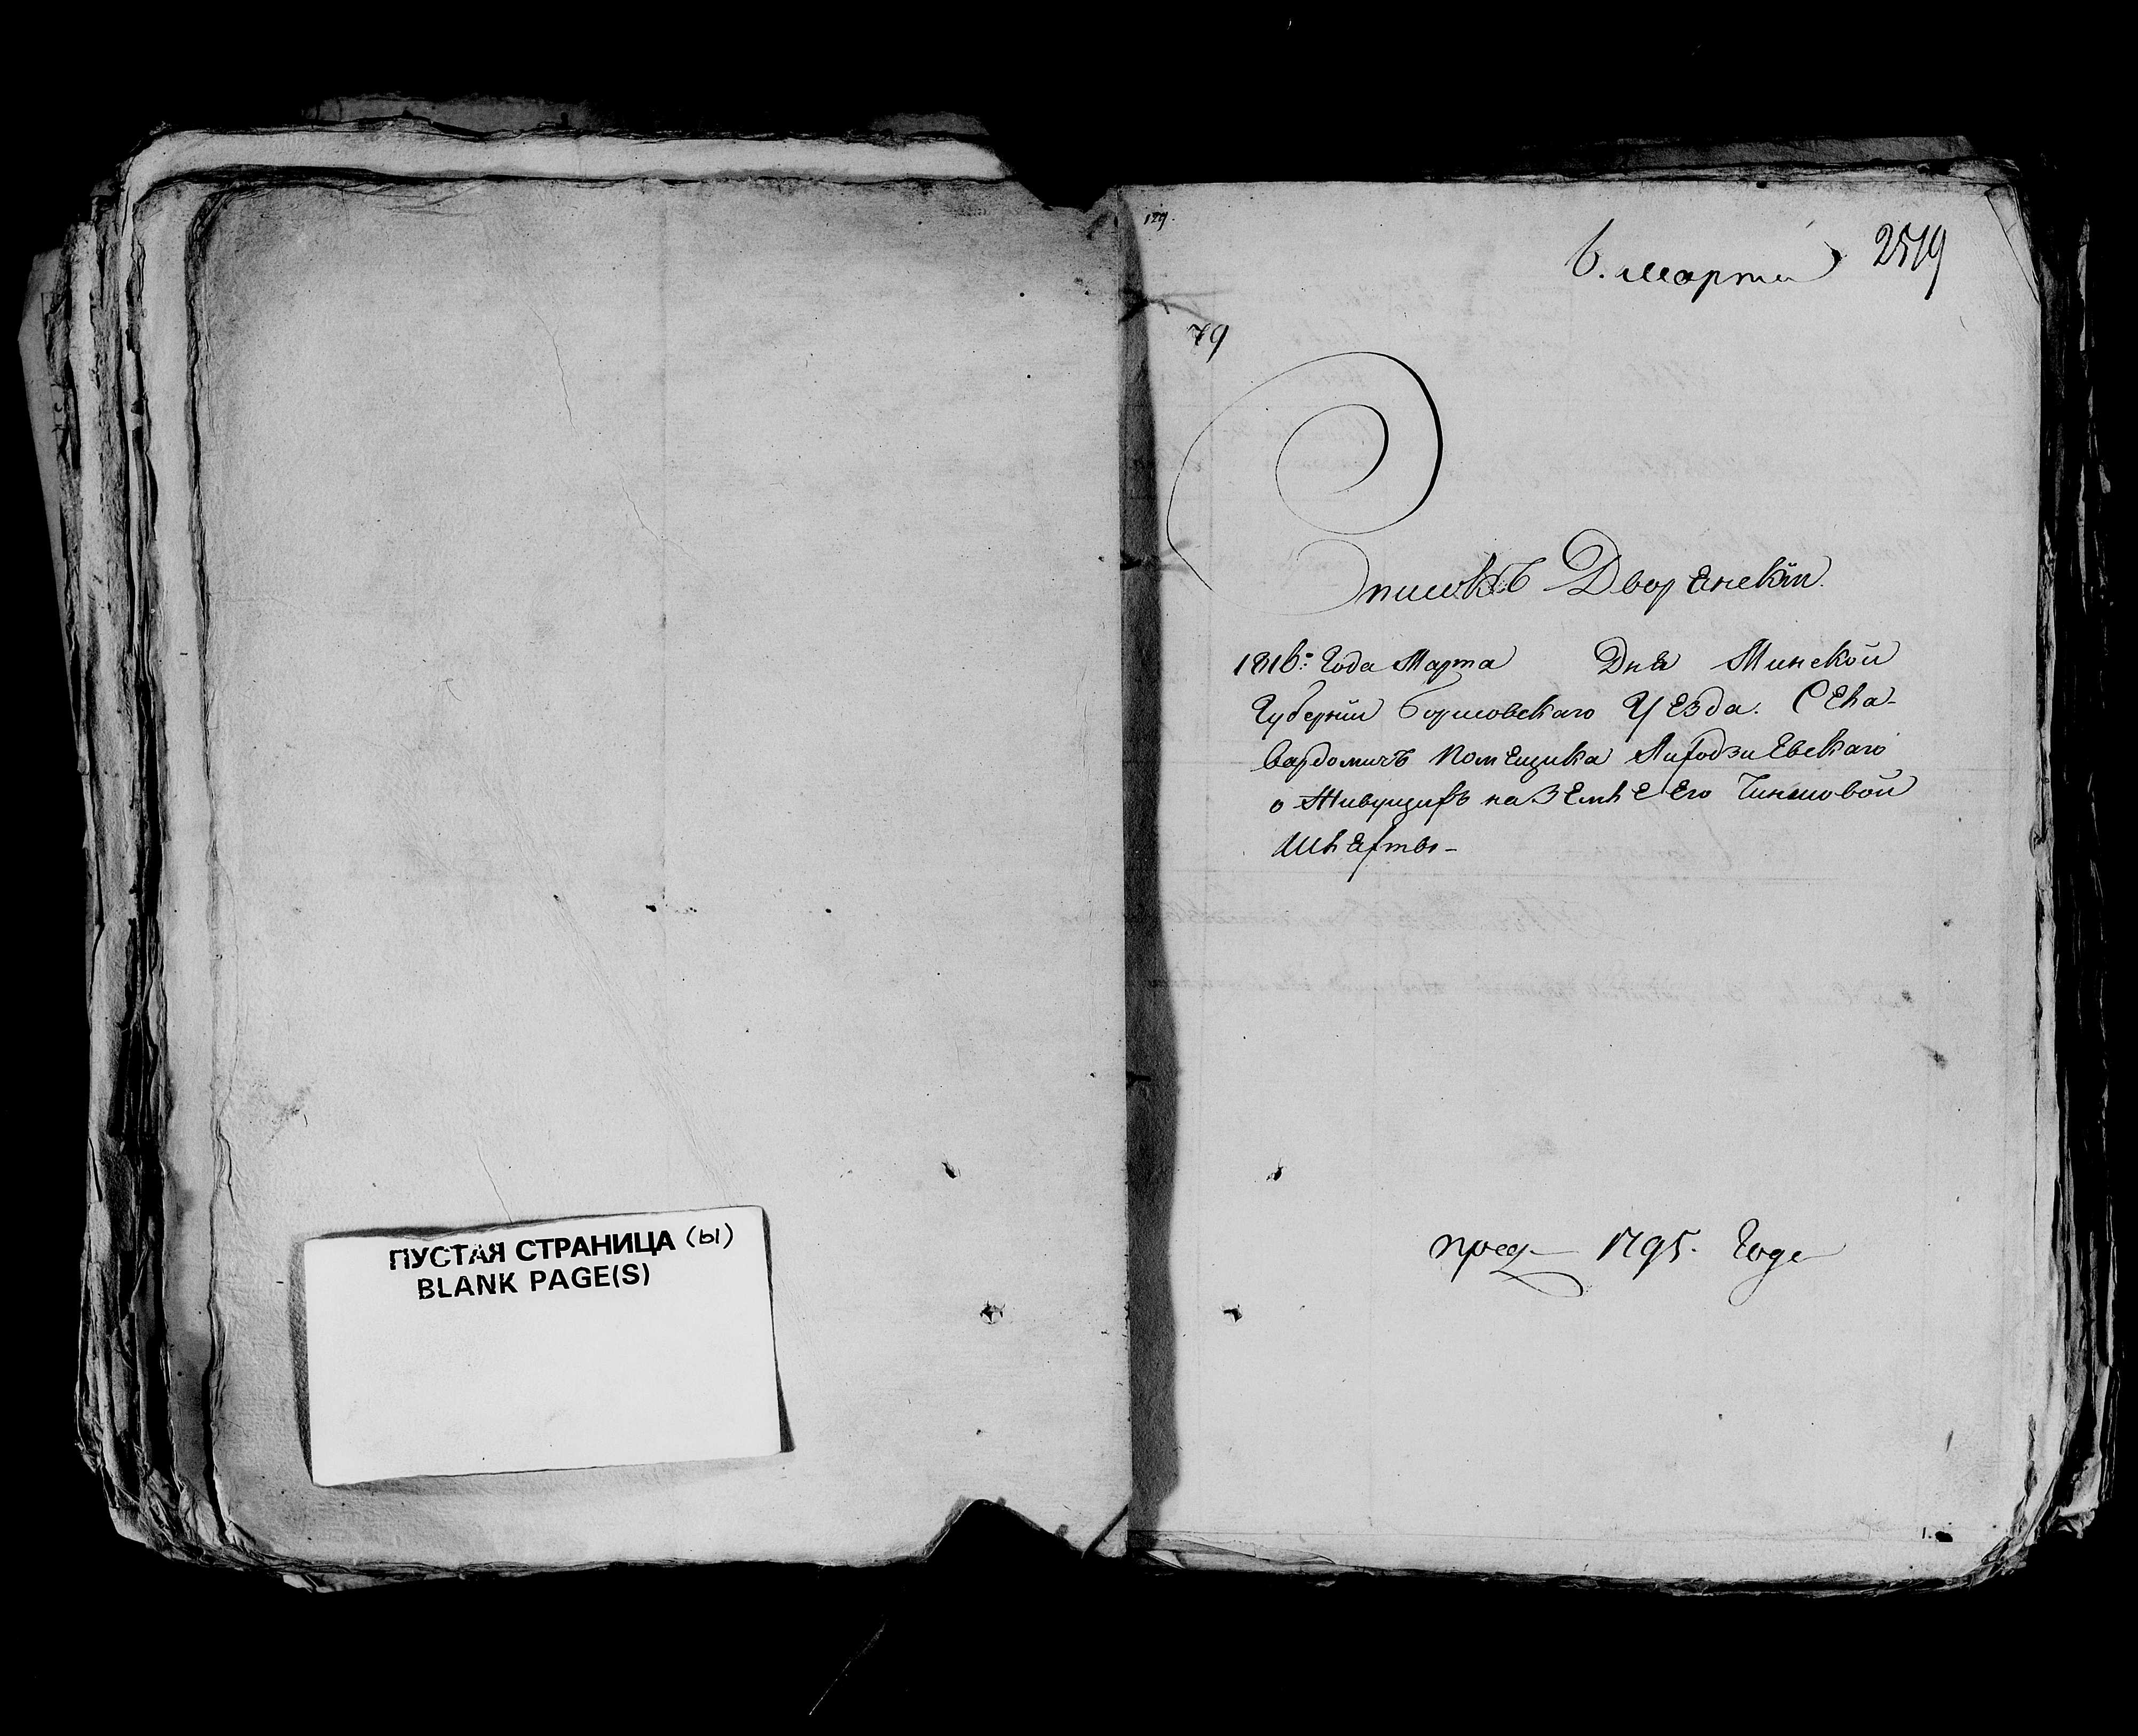 ПУСТАЯ СТРАНИЦА (ы)
BLANK PAGE(S)
129.
6. Марта
2519
79
Списокъ Дворенскїи.
1816: Года Марта Дня Минской
Губерніи Борисовскаго Уезда. Села
Вардомичъ Помещика
о Живущихъ на Земле Его Чиншовой
Шляхты -
1795. Годе
1.